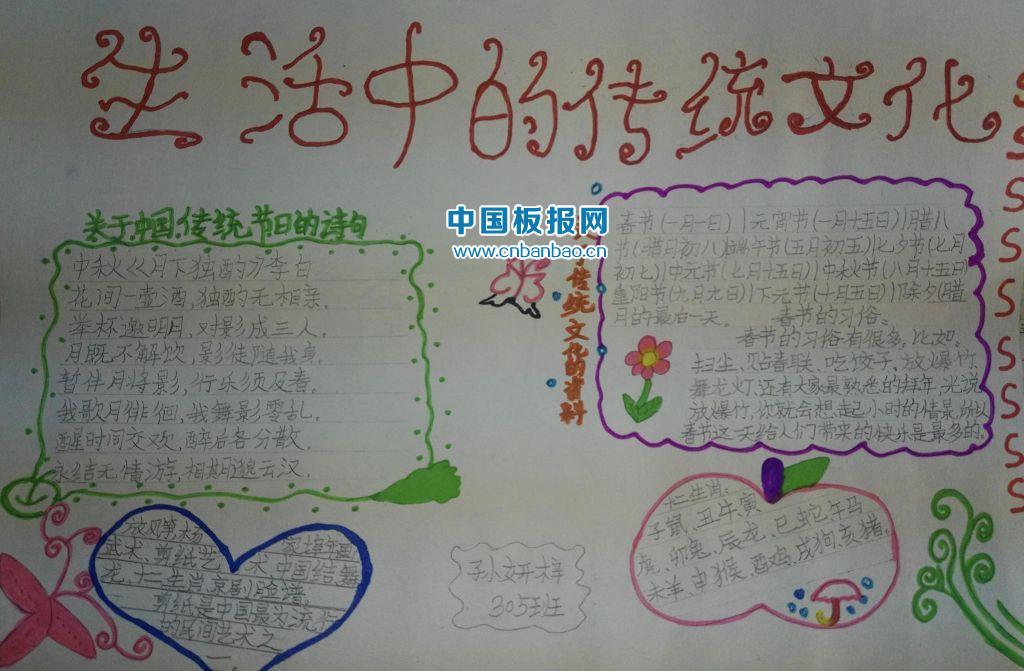 生活中的传统文化
关于中国传统节日的诗句
中国板报网
www.cnbanbao.cn
中秋《月下独酌》李白
花间一壶酒,独酌无相亲。
举杯邀明月,对影成三人。
月既不解饮,影徒随我身。
暂伴月将影,行乐须及春。
我歌月徘徊,我舞影零乱。
醒时间交欢,醉后各分散。
永结无情游,相期邈云汉。
传统文化的资料
春节(一月一日)|元宵节(一月十五日)|腊八
节(腊月初八)|端午节(五月初五)|七夕节(七月
初七)|中元节(七月十五日)|中秋节(八月十五日)
重阳节(九月九日)|下元节(十月五日)|除夕(腊
月的最后一天。 春节的习俗。
春节的习俗有很多。比如。
扫尘、贴春联、吃饺子、放爆竹、
舞龙灯,还有大家最熟悉的拜年,光说
放爆竹,你就会想起小时的情景,所以
春节这一天给人们带来的快乐是最多的。
放风筝
武术、剪纸艺术、中国结、舞
龙、十二生肖、京剧脸谱。
剪纸是中国最为流行
的民间艺术之
一。
孙妍梓
305班
十二生肖:
子鼠、丑牛、寅
虎、卯兔、辰龙、巳蛇、午马
未羊、申猴、酉鸡、戌狗、亥猪。
S
S
S
S
S
S
S